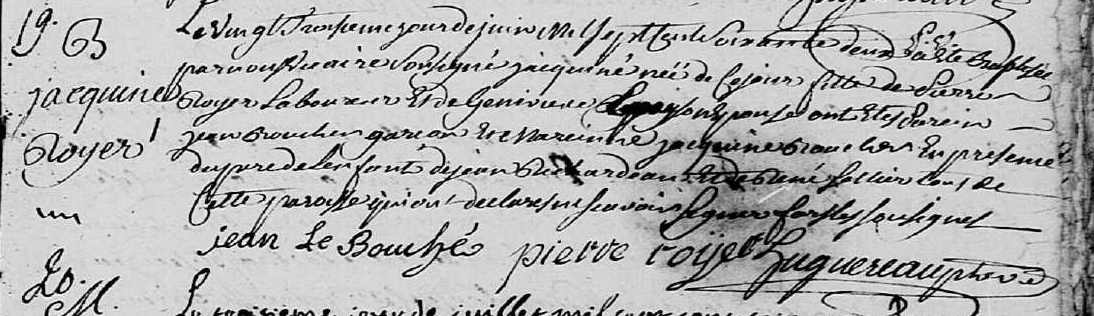 19. B
jacquine
Royer
Le vingt troisieme jour de juin mil sept cent soixante deux a été Baptisée
par nous vicaire soussigné jacquine née de ce jour fille de pierre
Royer Laboureur Et de Genevieve son epouse ont Etes parein
jean Boucher garcon Et Mareinne jacquine Boucher En presence
du pere de lenfant de jean Richardeau Et de René tous de
Cette paroisse qui ont declarés ne scavoir signer fors les soussignes
jean Le Bouché pierre roijer huguereau
20.
M.
Le troisieme jour de juillet mil sept cent